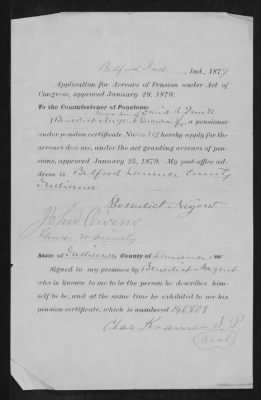 Bedford Ind , Ind., 1879
Application for Arrears of Pension under Act of
Congress, approved January 29, 1879.
To the Commissioner of Pensions:
David A.
I Benedict Nugent Guardian, a pensioner
under pension certificate No. hereby apply for the
arrears due me, under the act granting arrears of pen-
sions, approved January 25, 1879. My post-office ad-
dress is Bedford Lawrence County
Indiana
Benedict Nugent
John Owens
State of Indiana County of Lawrence ss:
Signed in my presence by Benedict Nugent
who is known to me to be the person he describes him-
self to be, and at the same time he exhibited to me his
pension certificate, which is numbered 196808
Chas Kramer J. P.
(Seal)